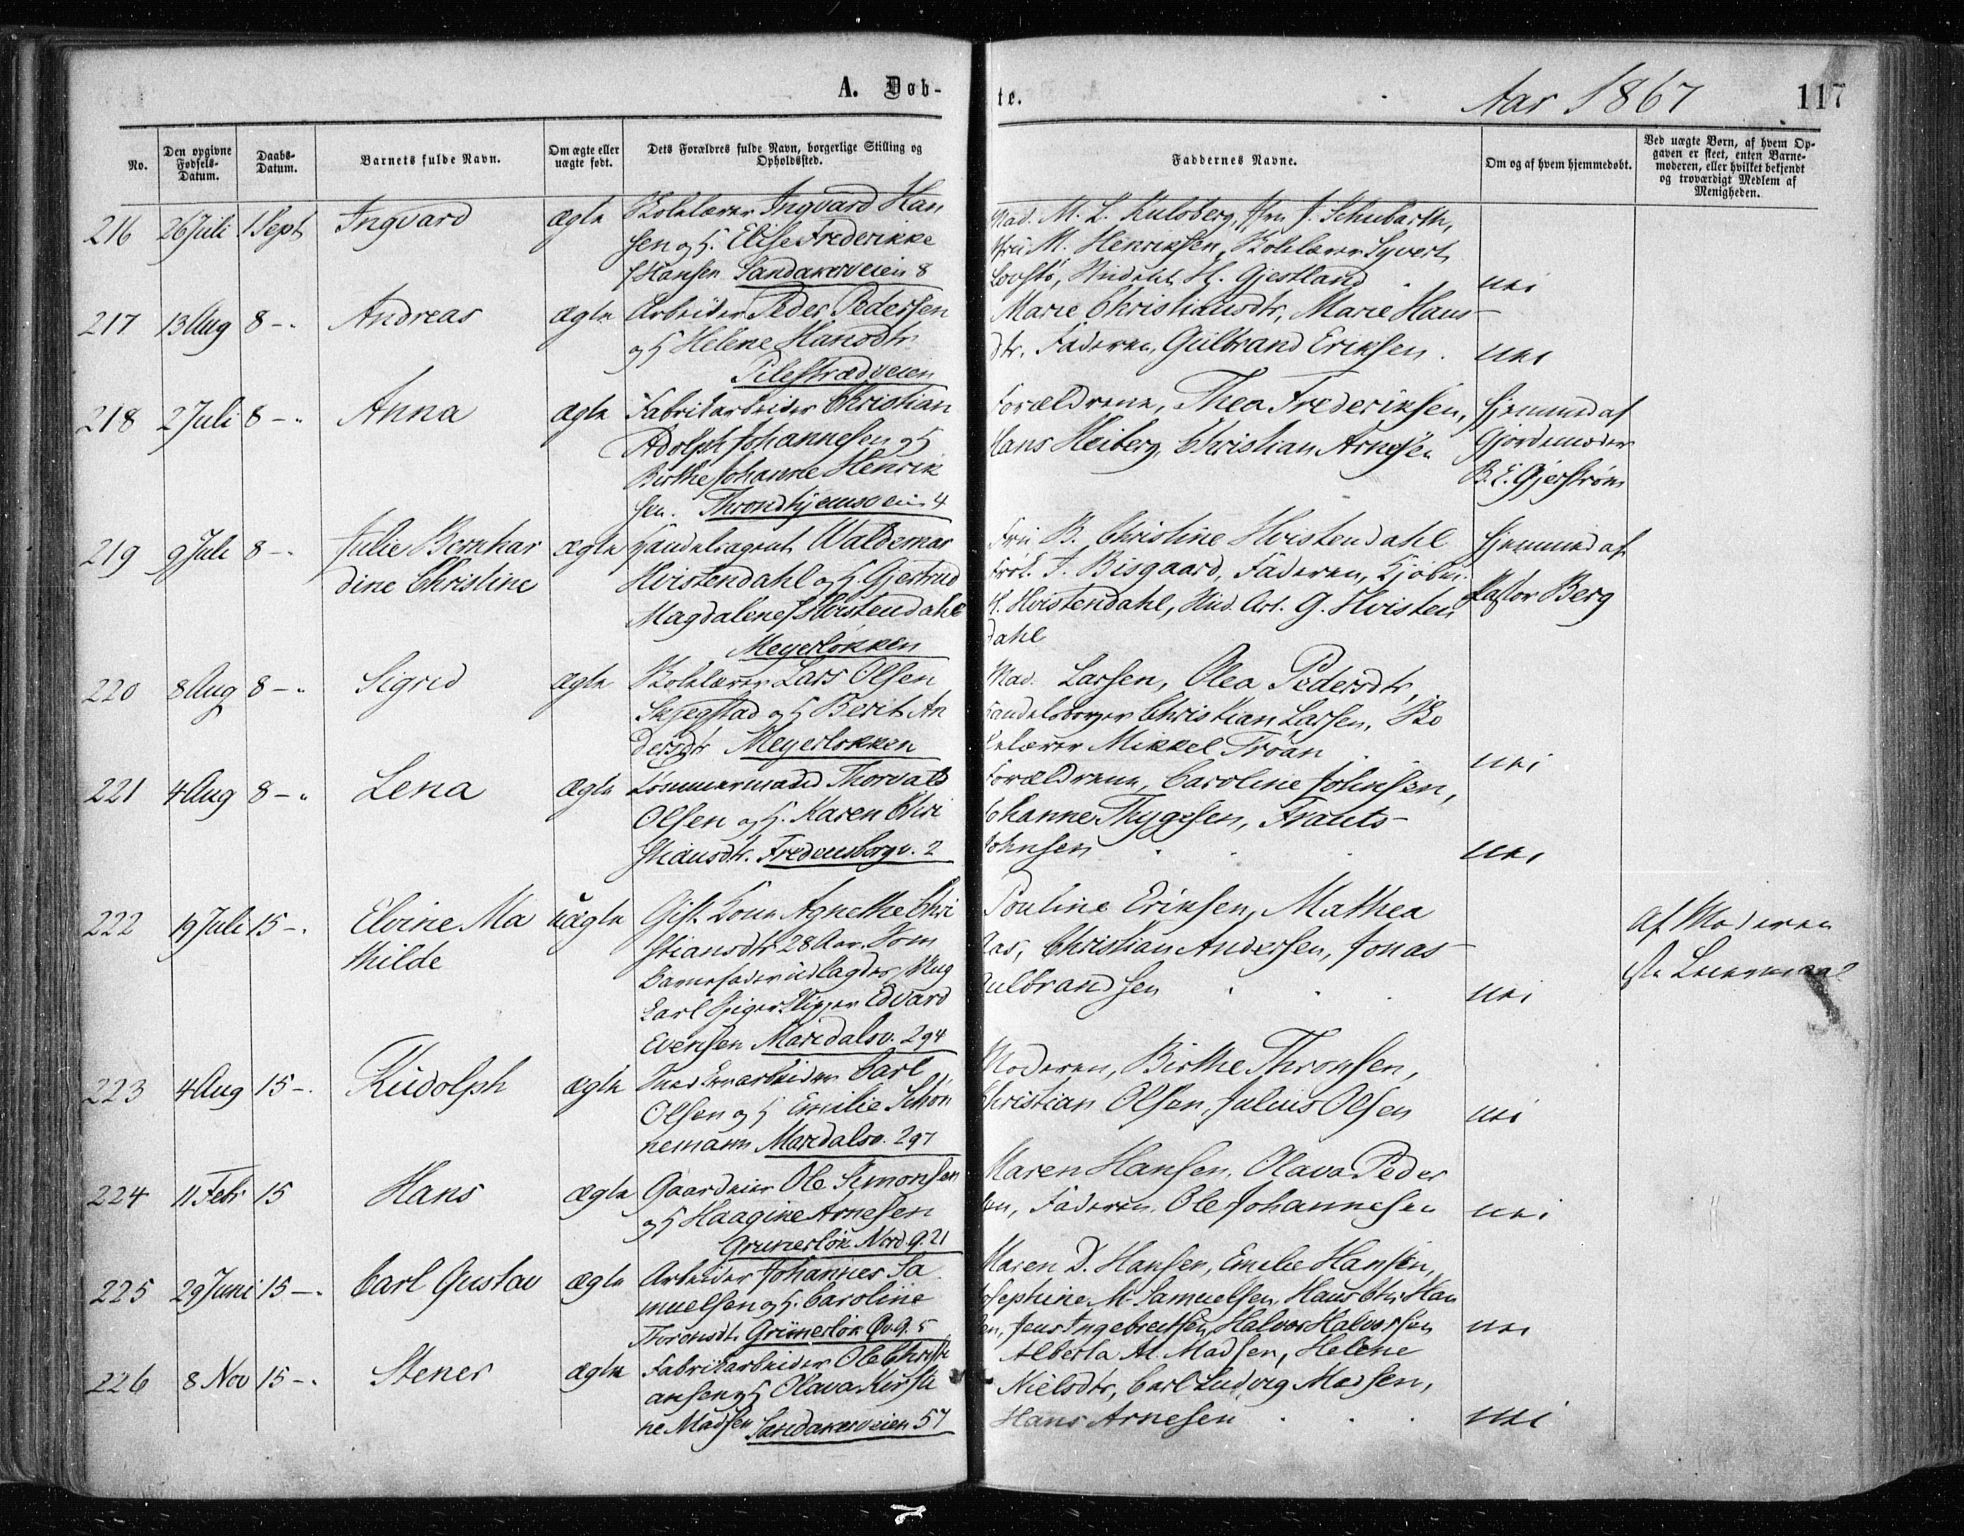 A. Døb-
te.
Aar 1867
117
No.
Den opgivne Fødsels-Datum.
Daabs-Datum.
Barnets fulde Navn.
Om ægte eller uægte født.
Dets Forældres fulde Navn, borgerlige Stilling og Opholdssted.
Faddernes Navne.
Om og af hvem hjemmedøbt.
Ved uægte Børn, af hvem Opgaven er skeet, enten Barnemoderen, eller hvilket bekjendt og troværdigt Medlem af Menigheden.
216 26 Juli 1 Sept Ingvard ægte Skolelærer Ingvard Han
sen og H. Elise Frederikke
f Hansen Sandakerveien 8
Mad. M. L. Kulsberg, Fru J. Schubarth,
Fru M. Henriksen, Skolelærer Syvert
Lovstø, Student H. Gjestland nei
217 13 Aug 8 -.. Andreas ægte Arbeider Peder Pedersen
og H Helene Hansdtr.
Pilestrædveien
Marie Christiansdtr, Marie Hans-
dtr. Faderen, Gulbrand Eriksen. nei
218 2 Juli 8 -.. Anna ægte Fabrikarbeider Christian
Adolph Johannesen og H
Birthe Johanne Henrik
sen. Throndhjemsveien 4
Forældrene, Thea Frederiksen, hjemmed af
Hans Heiberg, Christian Arnesen Gjordemoder
B. E. Gjerstrøm
219 9 Juli 8 -.. Julie Bernhar ægte Handelsagent Waldemar
dine Christine Hvistendahl og H Gjertrud
Magdalene f Hvistendahl
Meyerløkken
Fru B. Christine Hvistendahl hjemmed af
Frøk. J. Bisgaard, Faderen, Kjøbm. Pastor Berg
K. Hvistendahl, Stud. Art. G. Hvisten
dahl
220 8 Aug 8 -.. Sigrid ægte Skolelærer Lars Olsen
Skjegstad og H Berit An
dersdtr Meyerløkken
Mad. Larsen, Olea Pedersdtr,
Handelsborger Christian Larsen, Sko
lelærer Mikkel Troan nei
221 4 Aug 8 -.. Lena ægte Tømmermand Thorvald
Olsen og H. Karen Chri
stiansdtr. Fredensborgv. 2
Forældrene, Caroline Johnsen,
Johanne Thygesen, Frants
Johnsen nei
222 19 Juli 15 -.. Elvine Ma uægte Gift Kone Agnethe Chri
thilde stiansdtr 28 Aar. Som
Barnefader udlagdes Ung
karl Edvard
Evensen Maridalsv. 294
Pouline Eriksen, Mathea
Aas, Christian Andersen, Jonas
Gulbrandsen nei
af Moderen
1ste Leiermaal
223 4 Aug 15 -.. Rudolph ægte Carl
Olsen og H Emilie Schön
nemann Maridalsv. 297
Moderen, Birthe Thronsen,
Christian Olsen, Julius Olsen nei
224 11 Febr 15 Hans ægte Gaardeier Ole Simonsen
og H Haagine Arnesen
Grunerløk Nord. g. 21
Maren Hansen, Olava Peder
sen, Faderen, Ole Johannesen nei
225 29 Juni 15 -.. Carl Gustav ægte Arbeider Johannes Sa
muelsen og H. Caroline
Thronsdtr. Grünerløk Øv. g. 5
Maren D. Hansen, Emilie Hansen,
Josephine M. Samuelsen, Hans Chr. Han
sen, Jens Ingebretsen, Halvor Halvorsen nei
226 8 Nov 15 -.. Stener ægte Fabrikarbeider Ole Christi
ansen og H Olava Kirsti
ne Madsen Sandakerveien 57
Alberta M. Madsen, Helene
Nielsdtr, Carl Ludvig Madsen,
Hans Arnesen nei